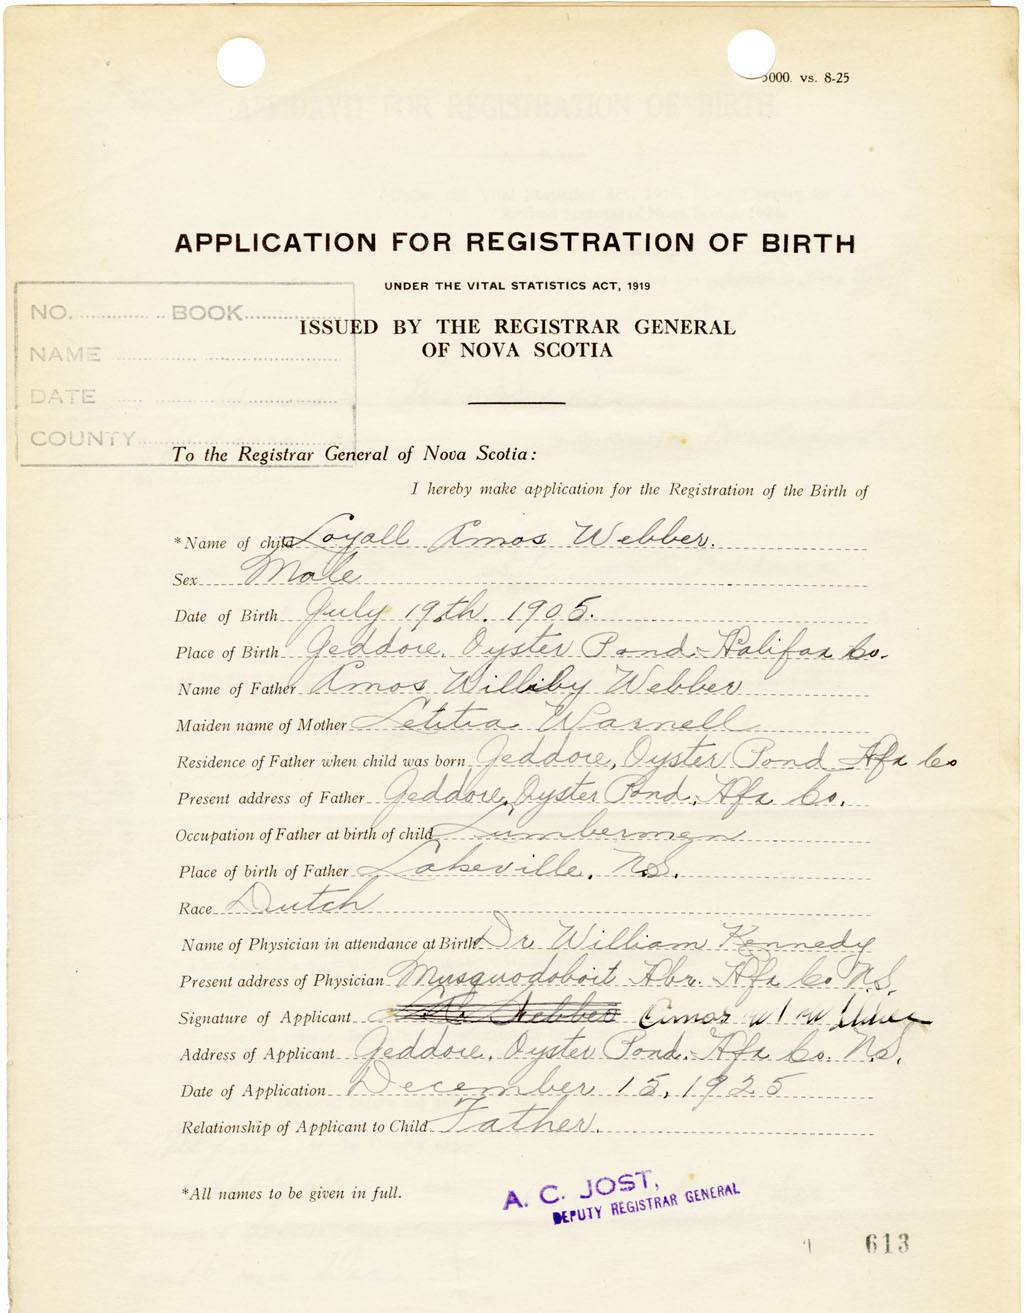 5000. vs. 8-25
APPLICATION FOR REGISTRATION OF BIRTH
UNDER THE VITAL STATISTICS ACT, 1919
ISSUED BY THE REGISTRAR GENERAL
OF NOVA SCOTIA
NO. BOOK
NAME
DATE
COUNTY
To the Registrar General of Nova Scotia:
I hereby make application for the Registration of the Birth of
*Name of child Loyall Amos Webber.
Sex Male
Date of Birth July 19th. 1905.
Place of Birth Jeddore, Oyster Pond. Halifax Co.
Name of Father Amos Williby Webber
Maiden name of Mother Letitia Warnell
Residence of Father when child was born Jeddore, Oyster Pond Hfx Co
Present address of Father Jeddore, Oyster Pond, Hfx Co.
Occupation of Father at birth of child Lumberman
Place of birth of Father Lakeville, N.S.
Race Dutch
Name of Physician in attendance at Birth Dr William Kennedy
Present address of Physician Musquodoboit Hbr. Hfx Co N.S.
Signature of Applicant Amos W
Address of Applicant Jeddore, Oyster Pond, Hfx Co. N.S.
Date of Application December 15, 1925
Relationship of Applicant to Child Father.
*All names to be given in full.
A. C. JOST,
DEPUTY REGISTRAR GENERAL
613